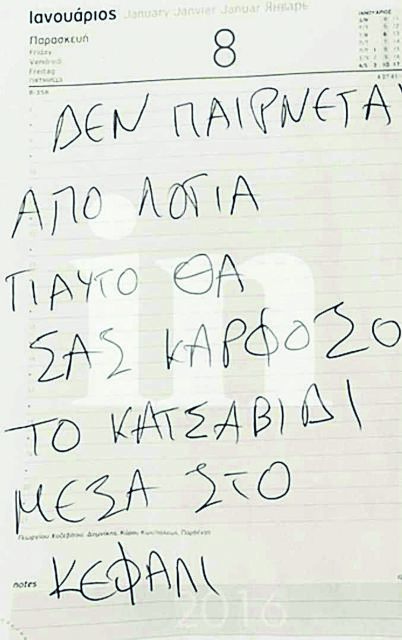 Ιανουάριος January Janvier Januar Январь
Παρασκευή
Friday
Vendredi
Freitag
ПЯТНИЦА
8
8-358
ΙΑΝΟΥΑΡΙΟΣ
ΔΕΝ ΠΑΙΡΝΕΤΑΙ
ΑΠΟ ΛΟΓΙΑ
ΓΙΑΥΤΟ ΘΑ
ΣΑΣ ΚΑΡΦΟΣΟ
ΤΟ ΚΑΤΣΑΒΙΔΙ
ΜΕΣΑ ΣΤΟ
in
notes ΚΕΦΑΛΙ
2016